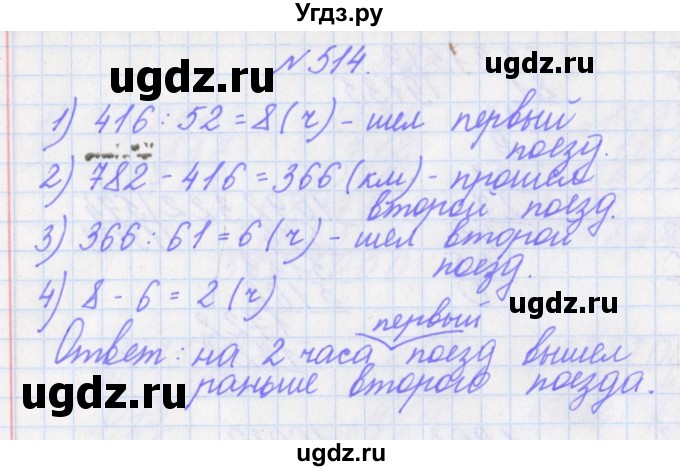 Угдз.ру
№ 514.
ugdz.ru ugdz.ru
1) 416 : 52 = 8 (ч) - шел первый
поезд.
2) 782 - 416 = 366 (км) - прошел
второй поезд.
ugdz.ru ugdz.ru
3) 366 : 61 = 6 (ч) - шел второй
поезд.
4) 8 - 6 = 2 (ч)
ugdz.ru ugdz.ru
первый
Ответ: на 2 часа поезд вышел
раньше второго поезда.
ugdz.ru ugdz.ru
ugdz.ru